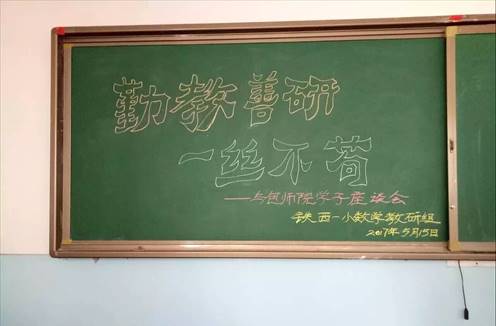 勤教善研
一丝不苟
——与包师院学子座谈会
铁西一小数学教研组
2017年5月15日